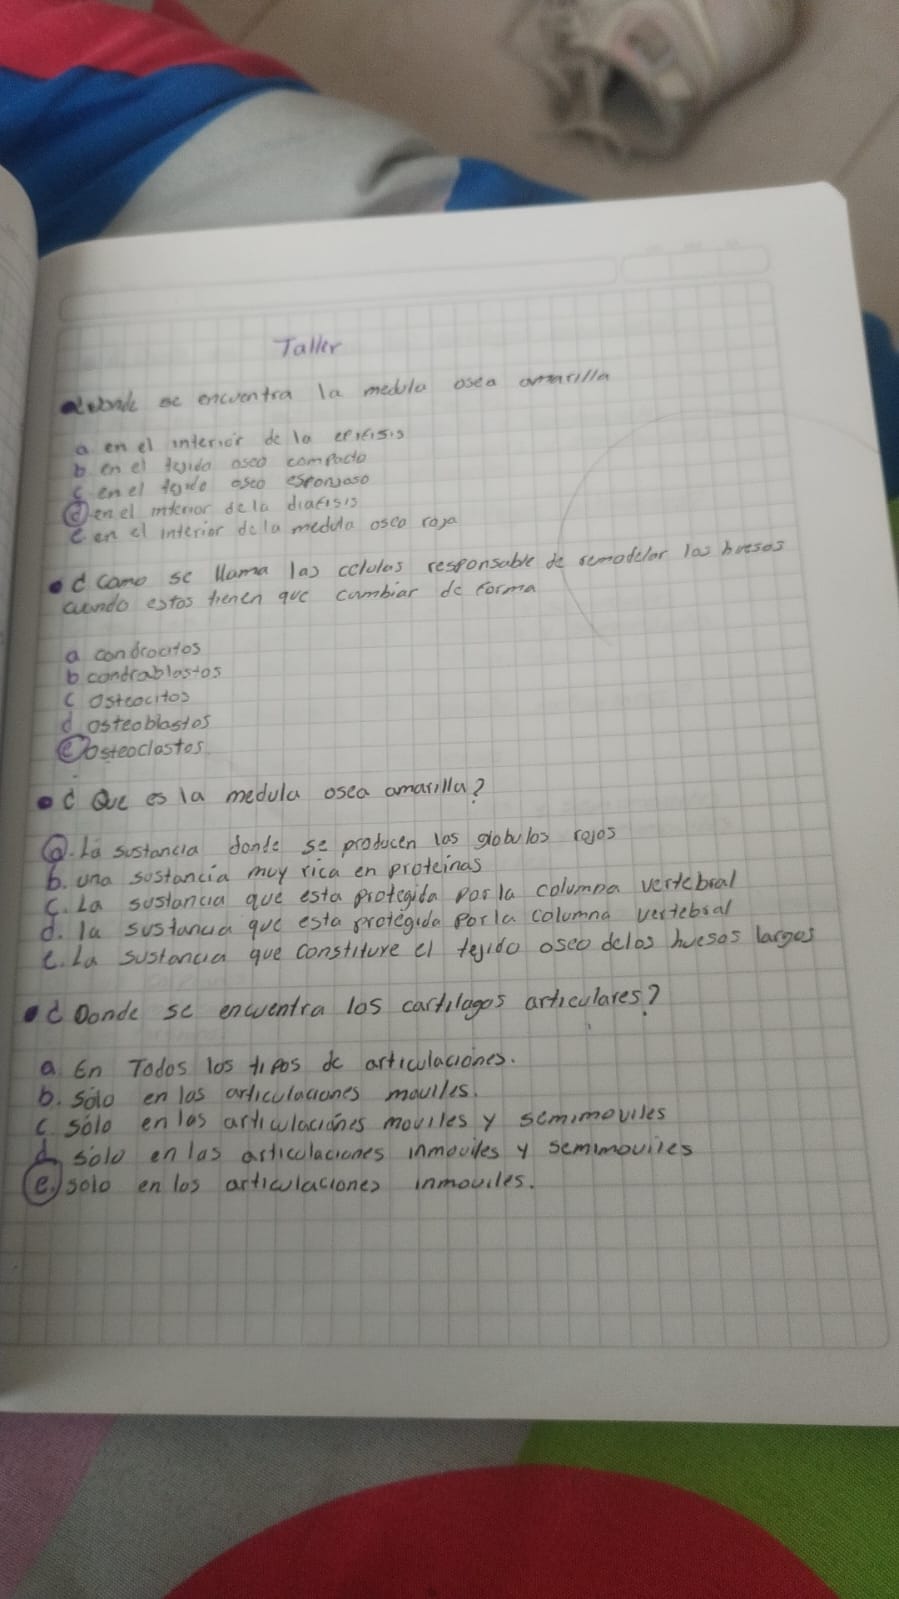 Taller
donde se encuentra la medula osea amarilla
a en el interior de la epifisis
b en el tejido oseo compacto
c en el tejido oseo esponjoso
d en el interior de la diafisis
e en el interior de la medula osea roja
¿ como se llama las celulas responsable de remodelar los huesos
cuando estos tienen que cambiar de forma
a condrocitos
b condrablastos
c osteocitos
d osteoblastos
e osteoclastos
¿ Que es la medula osea amarilla?
a. La sustancia donde se producen los globulos rojos
b. una sustancia muy rica en proteinas
c. La sustancia que esta protegida por la columna vertebral
d. la sustancia que esta protegida por la columna vertebral
e. La sustancia que constiture el tejido oseo delos huesos largos
¿ Donde se encuentra los cartilagos articulares?
a En Todos los tipos de articulaciones.
b. Sólo en las articulaciones moviles.
c sólo en las articulaciones moviles y semimoviles
d solo en las articulaciones inmoviles y semimoviles
e. solo en los articulaciones inmoviles.